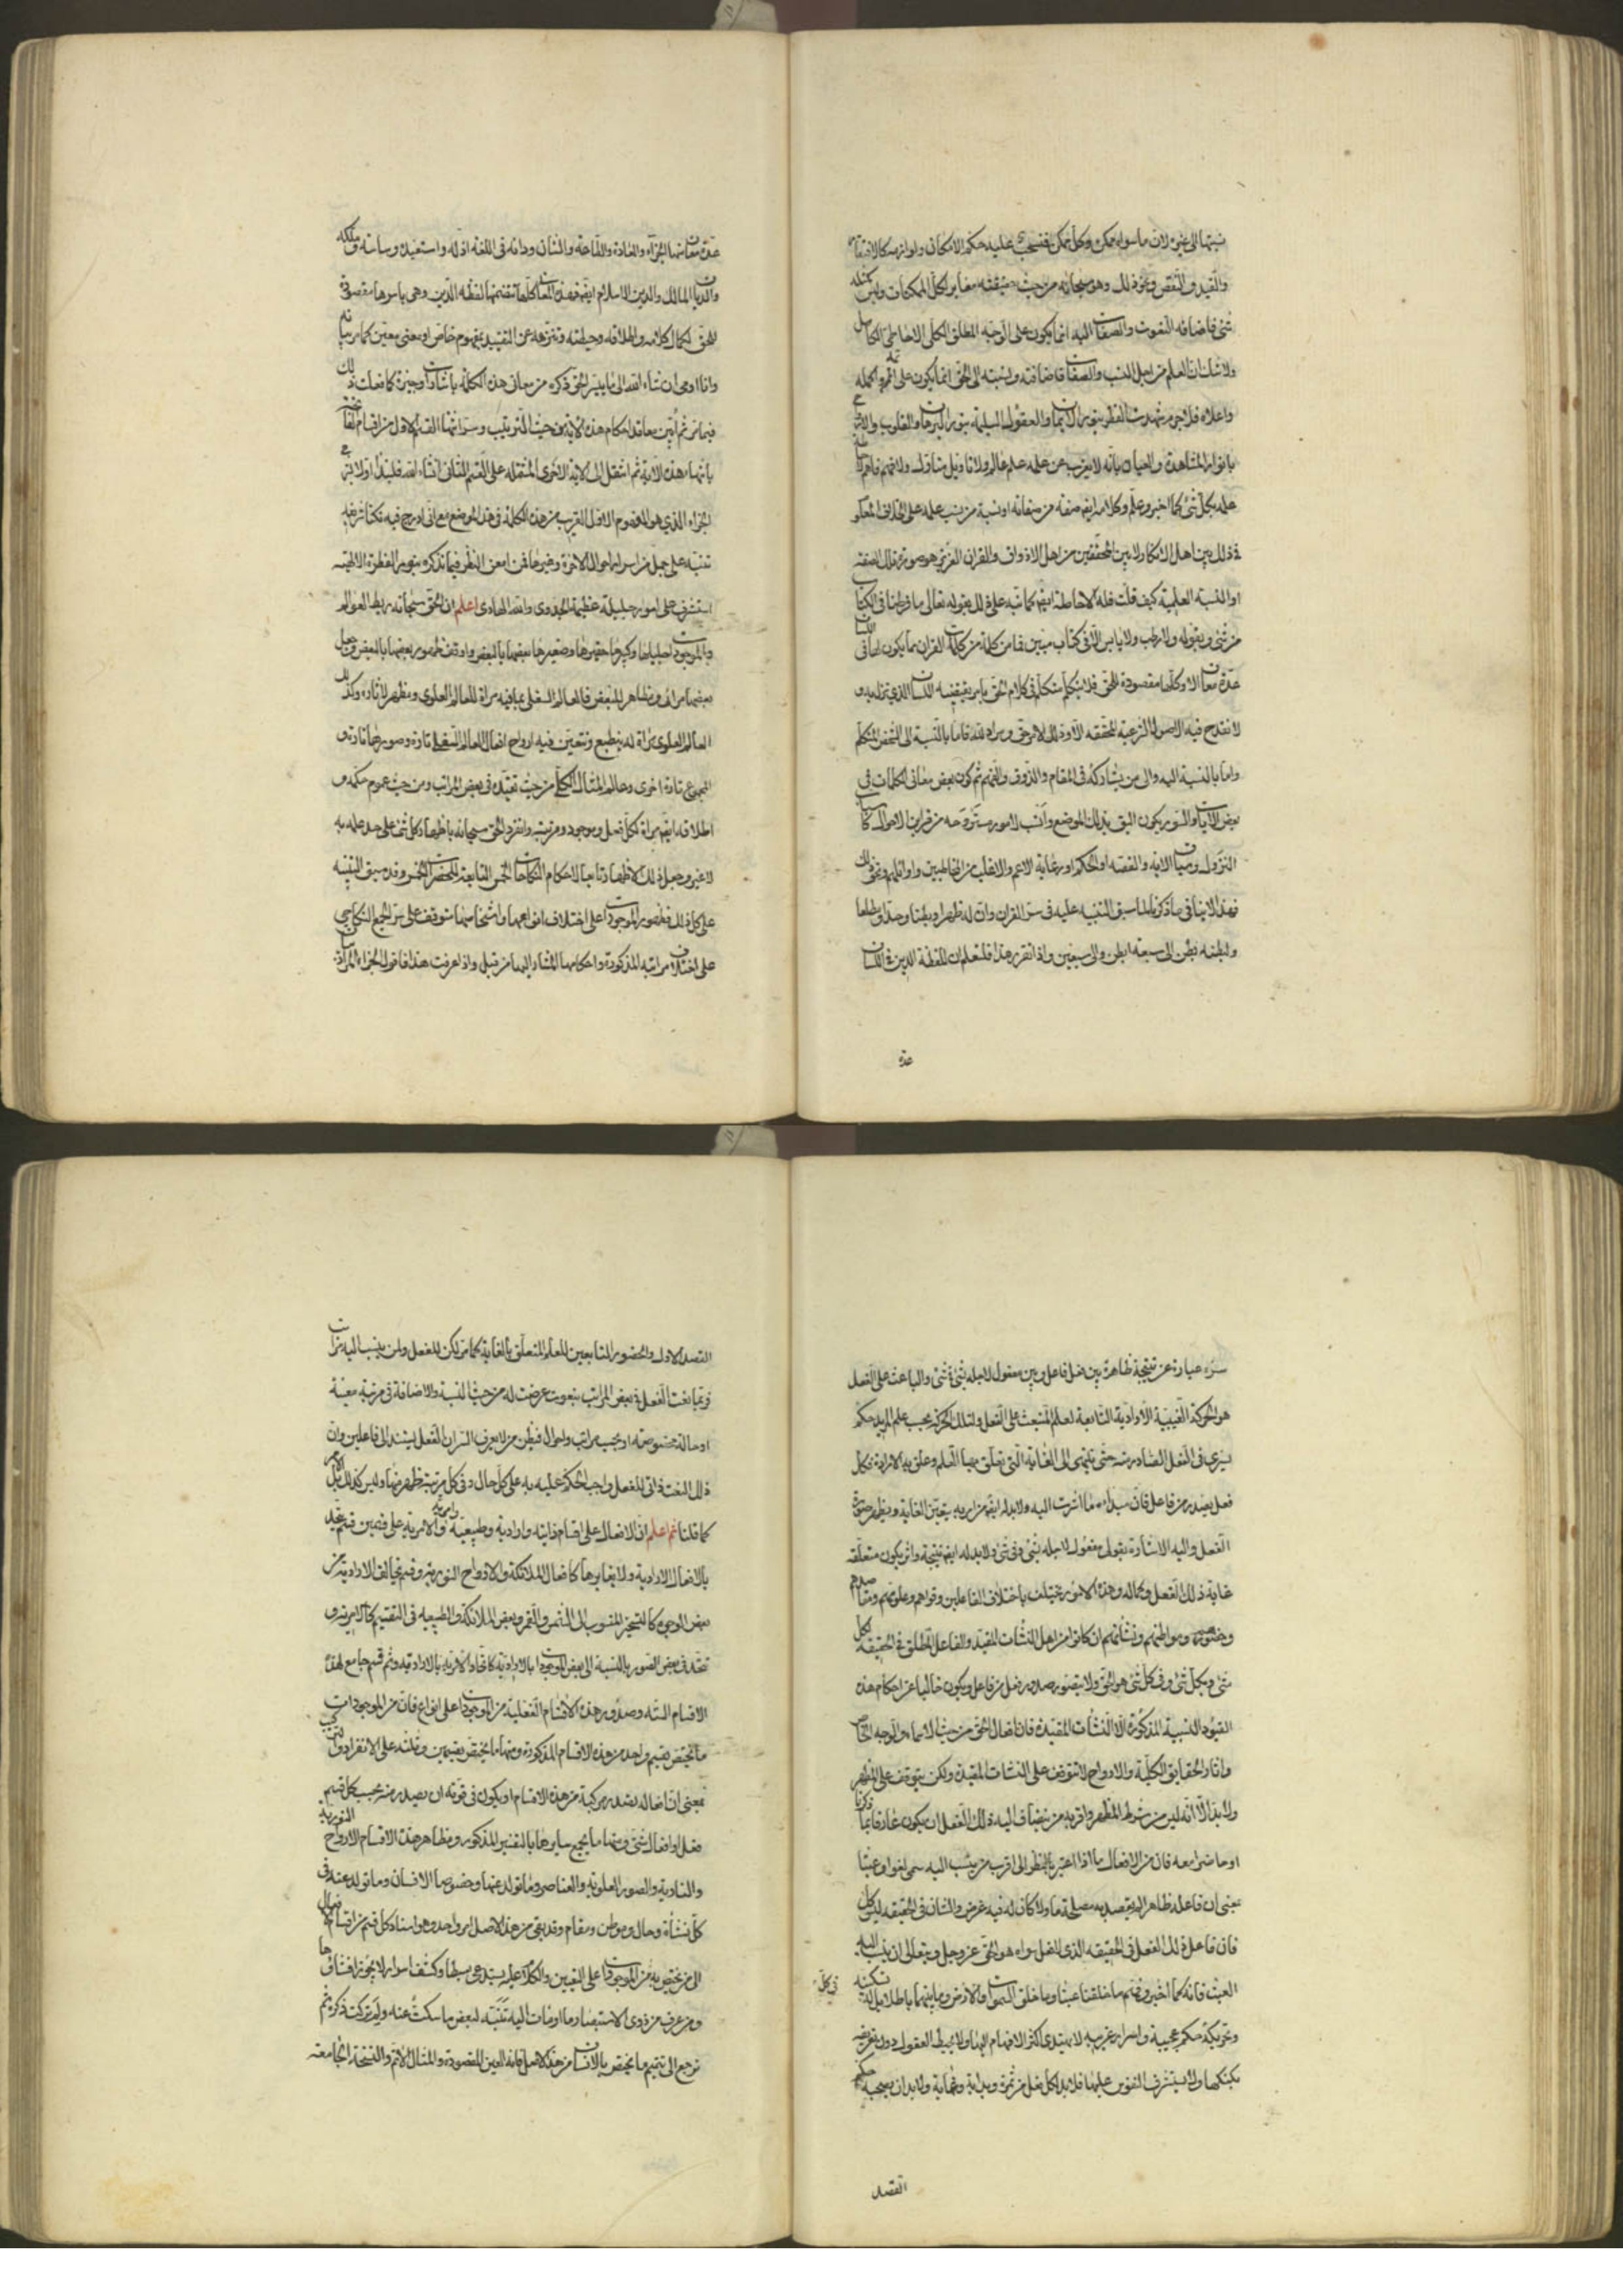 نسبتها الى غيره لان ما سواه ممكن وكل ممكن فمنسحب عليه حكم الامكان ولوازمه كالافتقار
والقيد والنقص ونحو ذلك وهو سبحانه من حيث حقيقته مغاير لكل الممكنات وليس كمثله
شئ فاضافة النعوت والصفات اليه انما يكون على الوجه المطلق الكلى الاحاطى الكامل
ولا شك ان العلم من اجل النسب والصفات فاضافته ونسبته الى الحق انما يكون على اتم وجه واكمله
واعلاه فلا جرم شهدت الفطر بنور الايمان والعقول السليمة بنور البرهان والقلوب والارواح
بانوار المشاهدة والعيان بانه لا يعزب عن علمه علم عالم ولا تاويل متاول ولا فهم فاهم لاحاطة
علمه بكل شئ كما اخبر وعلم وكلامه ايضا صفة من صفاته او نسبة من نسب علمه على الخلاف المعلوم
فى ذلك بين اهل الافكار لا بين المحققين من اهل الاذواق والقران العزيز هو صورة تلك الصفة
او النسبة العلمية كيف قلت فله الاحاطة ايضا كما نبه على ذلك بقوله تعالى ما فرطنا فى الكتاب
من شئ وبقوله ولا رطب ولا يابس الا فى كتاب مبين فما من كلمة من كلمات القران مما يكون لها فى اللسان
عدة معان الا وكلها مقصودة للحق فلا يتكلم متكلم فى كلام الحق بامر يقتضيه اللسان الذى نزل به و
لا تقدح فيه الاصول الشرعية المحققة الا وذلك الامر حق ومراد لله فاما بالنسبة الى الشخص المتكلم
واما بالنسبة اليه والى من يشاركه فى المقام والذوق والفهم ثم كون بعض معانى الكلمات فى
بعض الايات والسور يكون اليق بذلك الموضع وانسب لامور مشروحة من قراين الاحوال كاسباب
النزول وسياق الاية والقصة او الحكم او رعاية الاعم والاغلب من المخاطبين واوائلهم ونحو ذلك
فهذا لا ينافى ما ذكرنا لما سبق التنبيه عليه فى سر القران وان له ظهرا وبطنا وحدا ومطلعا
ولبطنه بطن الى سبعة ابطن والى سبعين واذا تقرر هذا فلتعلم ان للفظة الدين فى اللسان
عدة
عدة معان منها الجزاء والعادة والطاعة والشان ودانه فى اللغة اذله واستعبده وساسه وملكه
والديان المالك والدين الاسلام ايضا فهذه المعانى كلها تتضمنها لفظة الدين وهى باسرها مقصودة
للحق لكمال كلامه واطلاقه وحيطته وتنزهه عن التقييد بمفهوم خاص او معنى معين كما مر بيانه
وانا اومى ان شاء الله الى ما ييسر الحق ذكره من معانى هذه الكلمة باشارات وجيزة كما فعلت ذلك
فيما مر ثم ابين معاقد احكام هذه الاية من حيث الترتيب
بانتهاء هذه الاية ثم انتقل الى الاية الاخرى المشتملة على القسم الثانى ان شاء الله فلنبدا اولا بشرح
الجزاء الذى هو المفهوم الاول القريب من هذه الكلمة فى هذا الموضع مع انى ادرج فيه نكتا شريفة
تنبه على جمل من اسرار احوال الاخرة وغيرها فمن امعن النظر فيما نذكره بنور الفطرة الالهية
استشرف على امور جليلة عظيمة الجدوى والله الهادى اعلم ان الحق سبحانه ربط العوالم
والموجودات جليلها وكبيرها حقيرها وصغيرها بعضها بالبعض واوقف ظهور بعضها بالبعض وجعل
بعضها مراى ومظاهر للبعض فالعالم السفلى بما فيه مراة للعالم العلوى ومظهر لاثاره وكذلك
العالم العلوى مراة له ينطبع وتتعين فيه ارواح افعال العالم السفلى تارة وصورها تارة و
المجموع تارة اخرى وعالم المثال الكلى من حيث تقيده فى بعض المراتب ومن حيث عموم حكمه و
اطلاقه ايضا مراة لكل فعل وموجود ومرتبة وانفرد الحق سبحانه باظهار كل شئ على حد علمه به
لا غير وجعل ذلك الاظهار تابعا لاحكام النكاحات الخمس التابعة للحضرات الخمس وقد سبق التنبيه
على كل ذلك فظهور الموجودات على اختلاف انواعها واشخاصها متوقف على سر الجمع النكاحى
على اختلاف مراتبه المذكورة واحكامها المشار اليها من قبل واذا عرفت هذا فاقول الجزاء
سره عبارة عن نتيجة ظاهرة بين فعل فاعل وبين مفعول لاجله بشئ فى شئ والباعث على الفعل
هو الحركة الغيبية الارادية التابعة لعلم المنبعث على الفعل ولتلك الحركة بحسب علم المريد حكم
يسرى فى الفعل الصادر منه حتى ينتهى الى الغاية التى تعلق بها العلم وعلق به الارادة فكل
فعل يصدر من فاعل فان مبداه ما اشرت اليه ولا بد له ايضا من امر به يتعين الغاية ويظهر صورة
الفعل واليه الاشارة بقولى مفعول لاجله بشئ وفى شئ ولا بد له ايضا نتيجة واثر يكون متعلقه
غاية ذلك الفعل وكماله وهذه الامور تختلف باختلاف الفاعلين وقواهم وعلومهم ومقاصدهم
وحضورهم ومواطنهم ونشاتهم ان كانوا من اهل النشات المقيدة والفاعل المطلق فى الحقيقة لكل
شئ وبكل شئ وفى كل شئ هو الحق ولا يتصور صدور فعل من فاعل ويكون خاليا عن احكام هذه
القيود النسبية المذكورة الا النشات المقيدة فان افعال الحق من حيث الاسماء والوجه الخاص
واثار الحقايق الكلية والارواح لا تتوقف على النشات المقيدة ولكن يتوقف على المظاهر
ولا بد الا انه ليس من شرط المظهر واقربه من يضاف اليه ذلك الفعل ان يكون عارفا بما ذكرنا
او حاضرا معه فان من الافعال ما اذا اعتبر بالنظر الى اقرب من ينسب اليه سمى لغوا وعبثا
بمعنى ان فاعله ظاهرا لم يقصد به مصلحة ما ولا كان له فيه غرض والشان فى الحقيقة ليس كذلك
فان فاعل ذلك الفعل فى الحقيقة الذى لا فعل سواه هو الحق عز وجل ويتعالى ان ينسب اليه
العبث فانه كما اخبر وفهم ما خلقنا عبثا وما خلق السموات والارض وما بينهما باطلا بل له فى كل تسكينة
وتحريكة حكم عجيبة واسرار غريبة لا يهتدى اكثر الافهام اليها ولا يحيط العقول دون تعريفه
بكنهها ولا يستشرف النفوس عليها فلا بد لكل فعل من ثمرة وبداية وغاية ولا بد ان يصحبه حكم
القصد
القصد الاول والحضور التابعين للعلم المتعلق بالغاية كما مر لكن للفعل ولمن ينسب اليه مراتب
فربما نعت الفعل فى بعض المراتب بنعوت عرضت له من حيث النسبة والاضافة فى مرتبة معينة
او حالة مخصوصة او بحسب مراتب واحوال فيظن من لا يعرف السر ان الفعل يستند الى فاعلين وان
ذلك النعت ذاتى للفعل واجب الحكم عليه به على كل حال وفى كل مرتبة ظهر منها وليس كذلك بل الامر
كما قلنا ثم اعلم ان الافعال على اقسام ذاتية وارادية وطبيعية وامرية والامرية على قسمين قسم يتحد
بالافعال الارادية ولا يغايرها كافعال الملائكة والارواح النورية وقسم يخالف الارادية من
بعض الوجوه كالتسخير المنسوب الى الشمس والقمر وبعض الملائكة والطبيعية فى التقسيم كالامرية و
تتحد فى بعض الصور بالنسبة الى بعض الموجودات بالارادية كاتحاد الامرية بالارادية وثم قسم جامع لهذه
الاقسام الستة وصدور هذه الاقسام الفعلية من الموجودات على انواع فان من الموجودات
ما يختص بقسم واحد من هذه الاقسام المذكورة ومنها ما يختص بقسمين وثلثة على الانفراد وتتركب
بمعنى ان افعاله تصدر مركبة من هذه الاقسام او يكون فى قوته ان يصدر منه بحسب كل قسم
فعل او افعال شتى ومنها ما يجمع سايرها بالتفسير المذكور ومظاهر هذه الاقسام الارواح النورية
والنارية والصور العلوية والعناصر وما تولد عنها وخصوصا الانسان وما تولد عنه فى
كل نشاة وحال وموطن ومقام وقد بقى من هذا الاصل امر واحد وهو اسناد كل قسم من اقسام الافعال
الى من يختص به من الموجودات على التعيين والكلام عليه يستدعى بسطا وكشف اسرار لا يجوز افشاؤها
ومن عرف من ذوى الاستبصار ما اومأت اليه تنبه لبعض ما سكت عنه ولم تركت ذكره ثم
نرجع الى تتميم ما يختص بالانسان من هذا الاصل فانه العين المقصودة والمثال الاتم والنسخة الجامعة